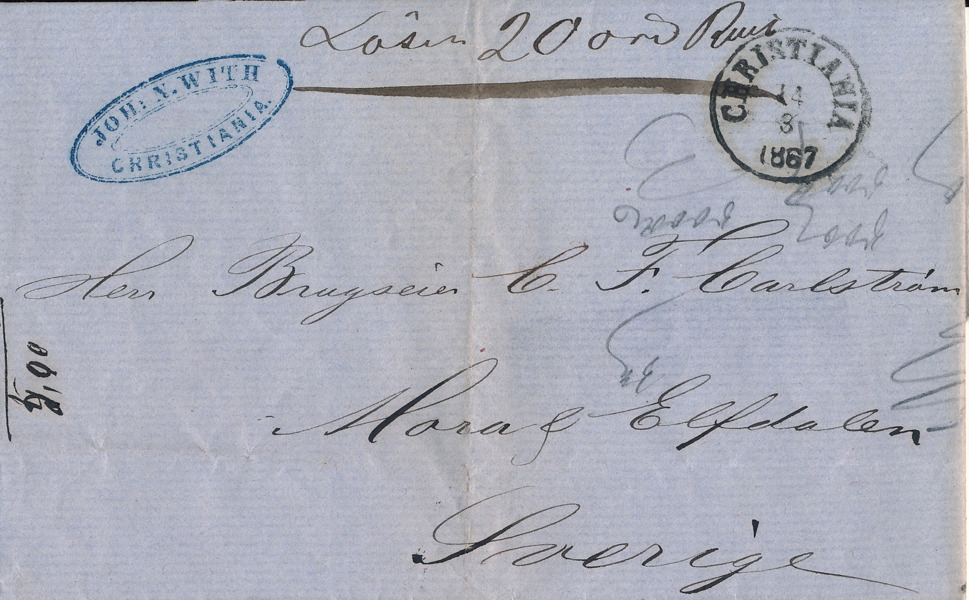 Lösen 20 öre Rmt
JOH: N. WITH
CHRISTIANIA.
CHRISTIANIA
14
8
1867
Herr Brugseier C. F. Carlström
Mora & Elfdalen
Sverige